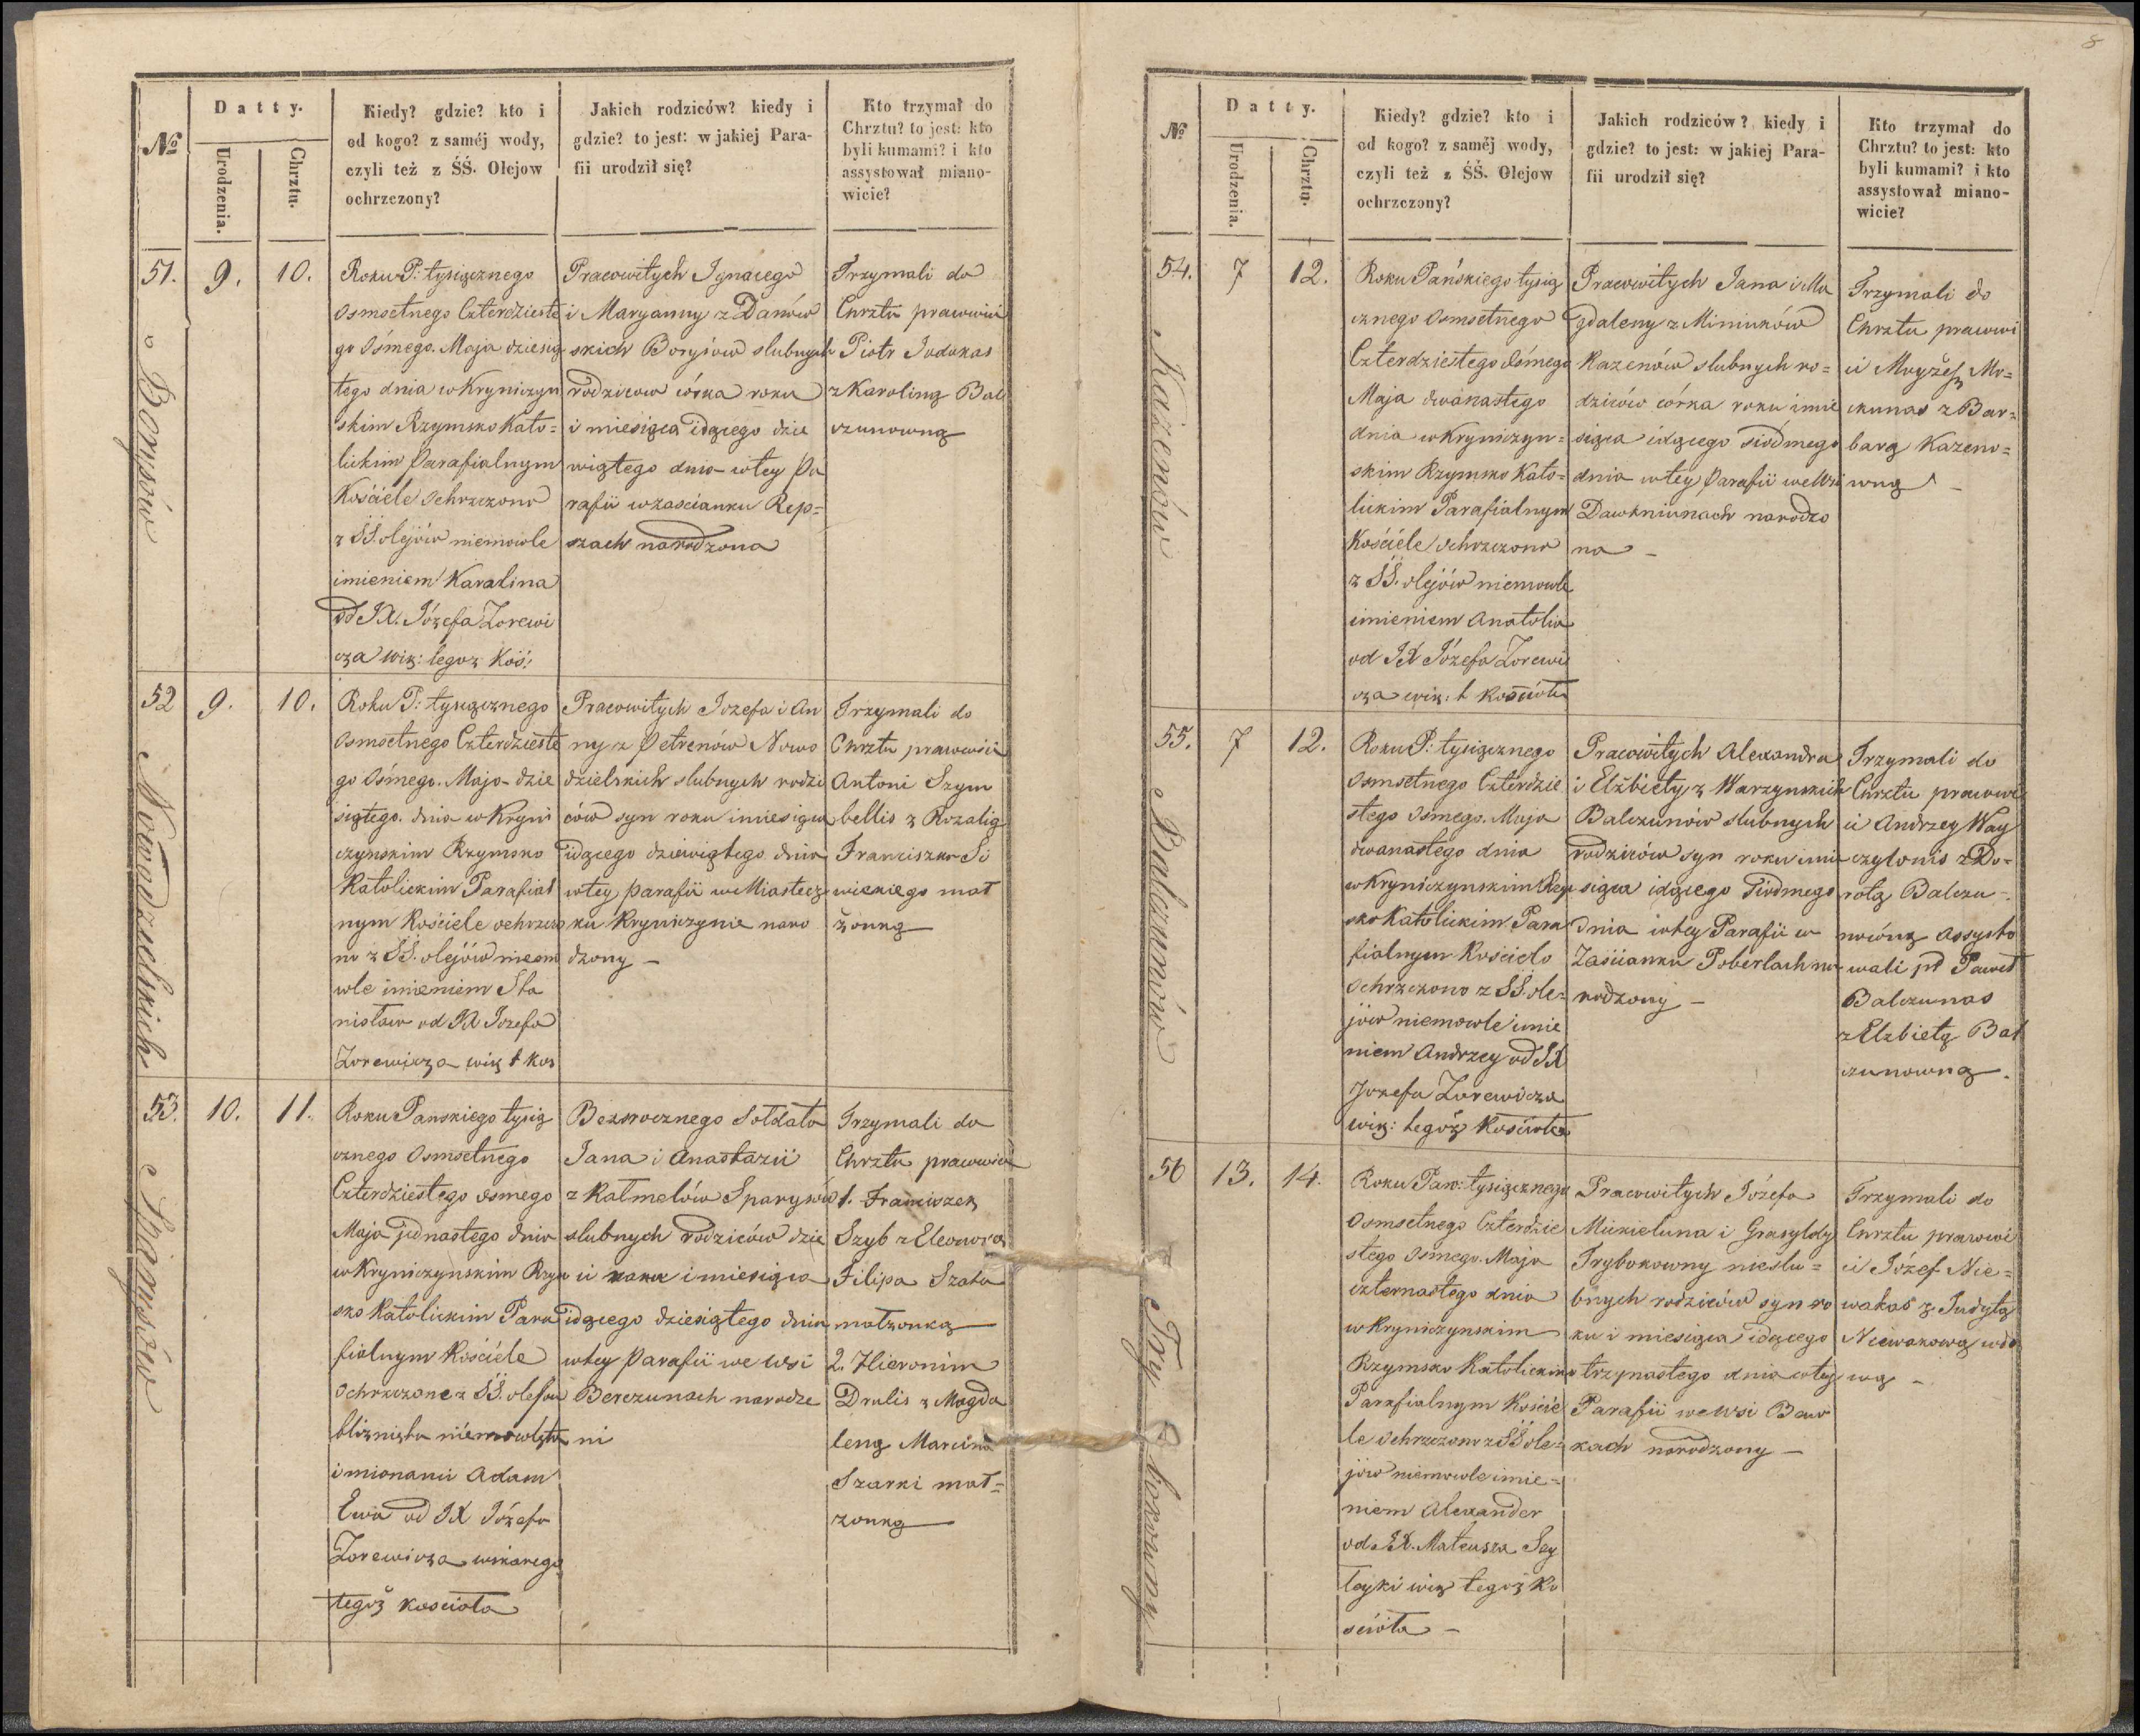 8
№
Datty.
Urodzenia.
Chrztu.
Kiedy? gdzie? kto i
od kogo? z saméj wody,
czyli też z ŚŚ. Olejow
ochrzczony?
Jakich rodziców? kiedy i
gdzie? to jest: w jakiej Para-
fii urodził się?
Kto trzymał do
Chrztu? to jest: kto
byli kumami? i kto
assystował miano-
wicie?
51.
Borysów
9.
10.
Roku P: tysiącznego
Osmsetnego Czterdzieste
go Ósmego. Maja dziesią
tego dnia w Kryniczyn
skim Rzymsko Kato=
lickim Parafialnym
Kościele Ochrzczono
z ŚŚ. olejów niemowle
imieniem Karalina
od JX. Józefa Zorewi
cza wik: tegoż Koś:
Pracowitych Ignacego
i Maryanny z Danów
skich Borysów slubnych
rodzicow córka roku
i miesiąca idącego dzie
wiątego dnia w tey Pa
rafii w zascianku Rep=
szach narodzona
Trzymali do
Chrztu prawowici
Piotr Judokas
z Karoliną Bal
czunowną
52
Nowodzielskich
9.
10.
Roku P: tysiącznego
Osmsetnego Czterdzieste
go Ósmego. Maja dzie
siątego. dnia w Kryni
czynskim Rzymsko
Katolickim Parafial
nym Kościele ochrzczo
no z ŚŚ. olejów niemo
wle imieniem Sta
nisław od JX Jozefa
Zorewicza wik t kos
Pracowitych Jozefa i An
ny z Petrenów Nowo
dzielskich slubnych rodzi
ców syn roku i miesiąca
idącego dziewiątego dnia
w tey parafii w Miastecz
ku Kryniczynie naro
dzony _
Trzymali do
Chrztu prawowici
Antoni Szym
bellis z Rozalią
Franciszka Si
wickiego mał
żonką
53.
Sparysów
10.
11.
Roku Panskiego tysią
cznego Osmsetnego
Czterdziestego osmego
Maja jednastego dnia
w Kryniczynskim Rzym
sko Katolickim Para
fialnym Kościele
Ochrzczone z ŚŚ. olejow
bliznięta niemowlęta
imionami Adam
Ewa od JX Józefa
Zorewicza wikarego
tegoż kosciola
Bezrocznego Sołdata
Jana i Anastazii
z Kalmelów Sparysów
slubnych rodziców dzie
ci roku i miesiąca
idącego dziesiątego dnia
w tey parafii we wsi
Berczunach narodze
ni
Trzymali do
Chrztu prawowici
1. Franciszek
Szyb z Eleonorą
Filipa Szata
małzonką
2. Hieronim
Drulis z Magda
leną Marcina
Szarki mał=
zonką
№
Datty.
Urodzenia.
Chrztu.
Kiedy? gdzie? kto i
od kogo? z saméj wody,
czyli też z ŚŚ. Olejow
ochrzczony?
Jakich rodziców? kiedy i
gdzie? to jest: w jakiej Para-
fii urodził się?
Kto trzymał do
Chrztu? to jest: kto
byli kumami? i kto
assystował miano-
wicie?
54.
Kazenów
7
12.
Roku Pańskiego tysią
cznego Osmsetnego
Czterdziestego Ósmego
Maja dwónastego
dnia w Kryniczyn=
skim Rzymsko Kato=
lickim Parafialnym
Kościele ochrzczono
z ŚŚ. olejów niemowle
imieniem Anatolia
od JX Józefa Zorewi
cza wik: t Kosciola
Pracowitych Jana i Ma
gdaleny z Miniuków
Kazenów slubnych ro=
dziców córka roku i mie
siąca idącego siódmego
dnia w tey Parafii we Wsi
Dawkniunach narodzo
na _
Trzymali do
Chrztu prawowi
ci Moyżesz Mo=
ckunas z Bar=
barą Kazeno=
wną
55.
Balczunów
7
12.
Roku P: tysiącznego
Osmsetnego Czterdzie
stego Ósmego. Maja
dwanastego dnia
w Kryniczynskim Rzym
sko Katolickim Para
fialnym Kościele
Ochrzczono z ŚŚ. ole=
jów niemowle imie
niem Andrzey od JX
Jozefa Zorewicza
wik: tegoż Kosciola
Pracowitych Alexandra
i Elżbiety z Warzynskich
Balczunów slubnych
rodziców syn roku i mie
siąca idącego siodmego
dnia w tey Parafii w
Zasiianku Poberlach na
rodzony _
Trzymali do
Chrztu prawowi
ci Andrzey Way
czylonis z Do=
rotą Balczu=
nowną Assysto
wali Paweł
Balczunas
z Elzbietą Bal
czunowną.
56
Trybokowny
13.
14.
Roku Pań: tysiącznego
Osmsetnego Czterdzie
stego Osmego. Maja
czternastego dnia
w Kryniczynskim
Rzymsko Katolickim
Parafialnym Koście
le Ochrzczono z ŚŚ ole=
jów niemowle imie=
niem Alexander
od JX. Mateusza Sey
loyki wik tegoż Ko
sciola _
Pracowitych Józefa
Mickieluna i Grasyldy
Trybokowny nieslu=
bnych rodziców syn ro
ku i miesiąca idącego
trzynastego dnia w tey
Parafii we wsi Baw
kach narodzony _
Trzymali do
Chrztu prawowi
ci Józef Nie=
wakas z Judytą
Niewakową wdo
wą _